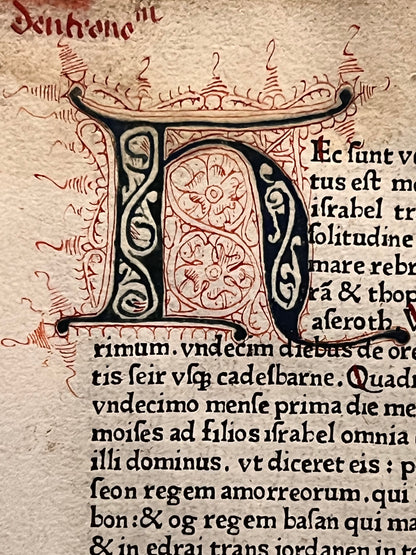 Deutronoᵐ
HEc ſunt ve
tus eſt mo
iſrahel tr
ſolitudine
mare rebr
rā & thop
aſeroth.
rimum. vndecim diebus de ore
tis ſeir vſqꝫ cadeſbarne. Quadr
vndecimo menſe prima die me
moiſes ad filios iſrahel omnia
illi dominus. vt diceret eis : p
ſeon regem amorreorum. qui
bon : & og regem baſan qui ma
& in edrai trans iordanen in te